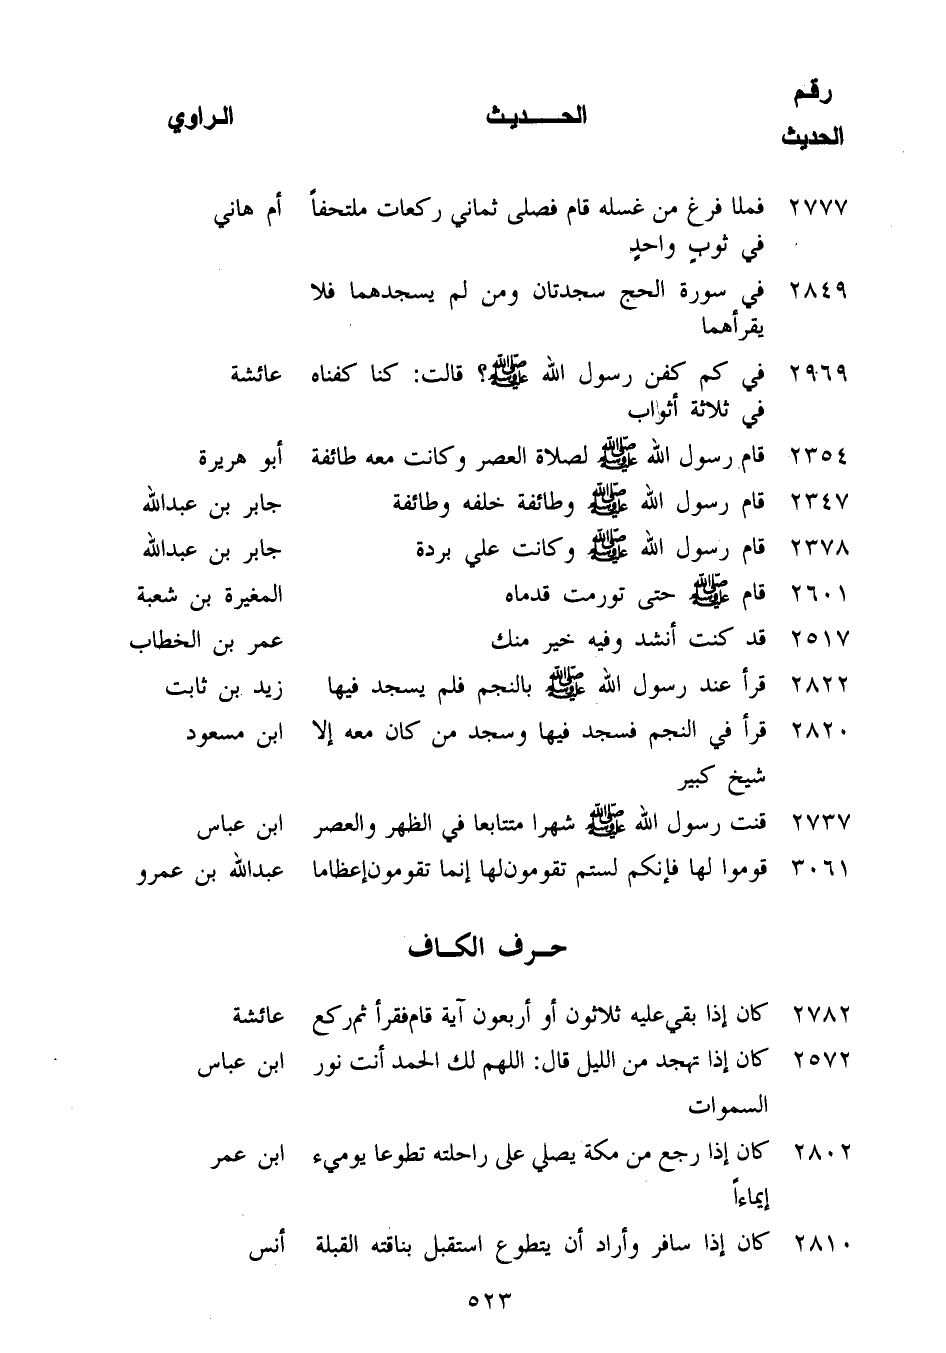 رقم
الحديث الحـــديث الراوي
٢٧٧٧ فملا فرغ من غسله قام فصلى ثماني ركعات ملتحفاً أم هاني
في ثوبٍ واحدٍ
٢٨٤٩ في سورة الحج سجدتان ومن لم يسجدهما فلا
يقرأهما
٢٩٦٩ في كم كفن رسول الله ﷺ؟ قالت: كنا كفناه عائشة
في ثلاثة أثواب
٢٣٥٤ قام رسول الله ﷺ لصلاة العصر وكانت معه طائفة أبو هريرة
٢٣٤٧ قام رسول الله ﷺ وطائفة خلفه وطائفة جابر بن عبدالله
٢٣٧٨ قام رسول الله ﷺ وكانت علي بردة جابر بن عبدالله
٢٦٠١ قام ﷺ حتى تورمت قدماه المغيرة بن شعبة
٢٥١٧ قد كنت أنشد وفيه خير منك عمر بن الخطاب
٢٨٢٢ قرأ عند رسول الله ﷺ بالنجم فلم يسجد فيها زيد بن ثابت
٢٨٢٠ قرأ في النجم فسجد فيها وسجد من كان معه إلا ابن مسعود
شيخ كبير
٢٧٣٧ قنت رسول الله ﷺ شهرا متتابعا في الظهر والعصر ابن عباس
٣٠٦١ قوموا لها فإنكم لستم تقومون لها إنما تقومون إعظاما عبدالله بن عمرو
حـرف الكـاف
٢٧٨٢ كان إذا بقي عليه ثلاثون أو أربعون آية قام فقرأ ثم ركع عائشة
٢٥٧٢ كان إذا تهجد من الليل قال: اللهم لك الحمد أنت نور ابن عباس
السموات
٢٨٠٢ كان إذا رجع من مكة يصلي على راحلته تطوعا يوميء ابن عمر
إيماءاً
٢٨١٠ كان إذا سافر وأراد أن يتطوع استقبل بناقته القبلة أنس
٥٢٣